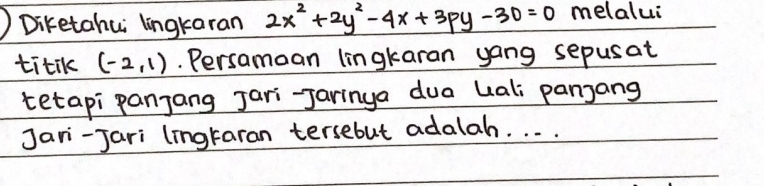 ) Diketahui lingkaran 2x² + 2y² - 4x + 3py - 30 = 0 melalui
titik (-2,1). Persamaan lingkaran yang sepusat
tetapi panjang Jari-Jarinya dua kali panjang
Jari-Jari lingkaran tersebut adalah....